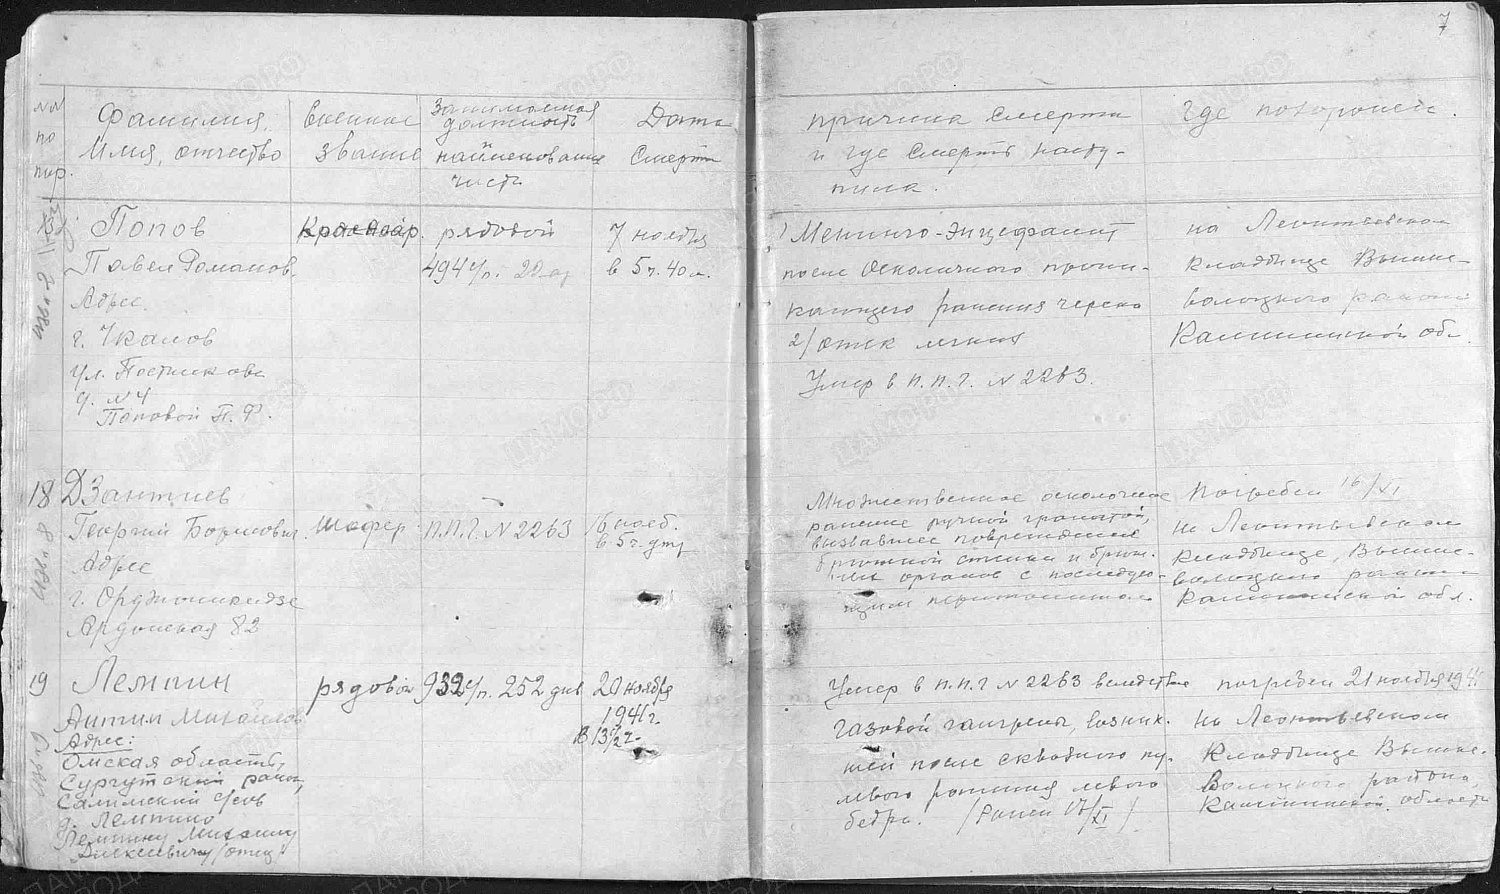 7
№№ по пор.
Фамилия, Имя, отчество
Военное звание
Занимаемая должность наименование части
Дата Смерти
причина Смерти
и где Смерть насту-
пила.
Где похоронен.
Попов
Павел Романов.
Адрес.
г. Чкалов
ул. Постникова
д. №4
Поповой П. Ф.
рядовой
494 с/п. 22
7 ноября
в 5 ч. 40 м.
Менинго-энцефалит
после осколочного прони-
кающего ранения черепа
2/ отек легких
Умер в П.П.Г. № 2263.
на Леонтьевском
кладбище Вышне-
волоцкого района
Калининской обл.
18
Дзантиев
Георгий Борисович.
Адрес
г. Орджоникидзе
Ардонская 82
Шофер
П.П.Г. № 2263
16 нояб.
в 5 ч. утр
Множественное осколочное
ранение ручной гранатой,
вызвавшее повреждение
брюшной стенки и брюш-
ных органов с последую-
щим перитонитом
Погребен 16/XI
на Леонтьевском
кладбище, Вышне-
волоцкого района
Калининской обл.
19
Лемпин
Антип Михайлов
Адрес:
Омская область,
Сургутский район,
Салимский с/сов
д. Лемпино
Лемпину Михаилу
Алексеевичу (отец)
рядовой
932 с/п. 252 див
20 ноября
1941 г.
В 13 22 ч.
Умер в П.П.Г № 2263 вследствие
газовой гангрены, возник-
шей после сквозного пу-
левого ранения левого
бедра. (Ранен 17/XI)
погребен 21 ноября 1941
на Леонтьевском
Кладбище Вышне-
Волоцкого района,
Калининской области